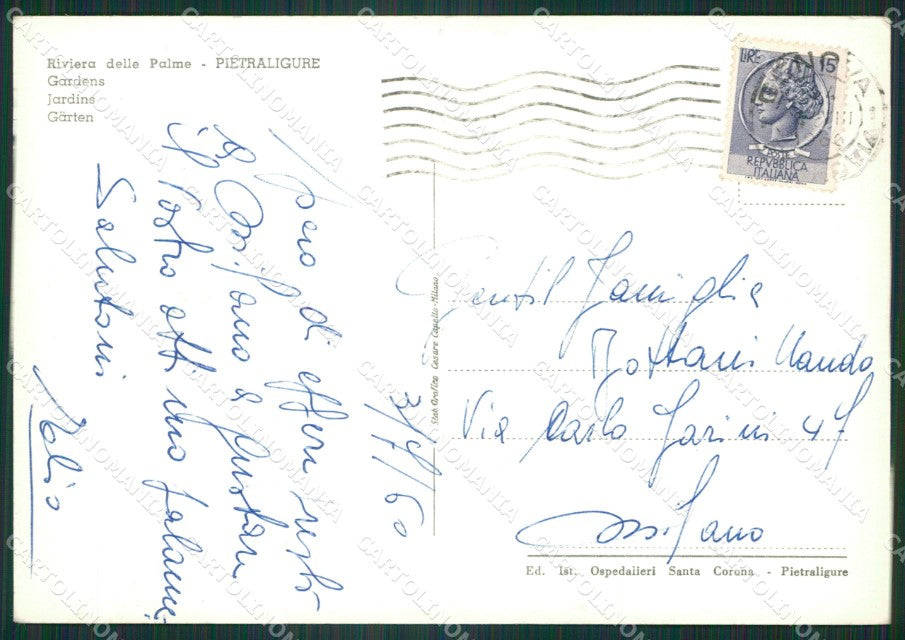 Riviera delle Palme - PIETRALIGURE
Gardens
Jardins
Gärten
Spero di essere presto
a Milano a gustare
il Vostro ottimo salame
Saluti
3/7/60
Stab. Grafico Cesare Capello - Milano
LIRE 15
POSTE
REPVBBLICA
ITALIANA
Gentil Famiglia
Nando
Via Carlo 47
Milano
Ed. Ist. Ospedalieri Santa Corona - Pietraligure
CARTOLINOMANIA